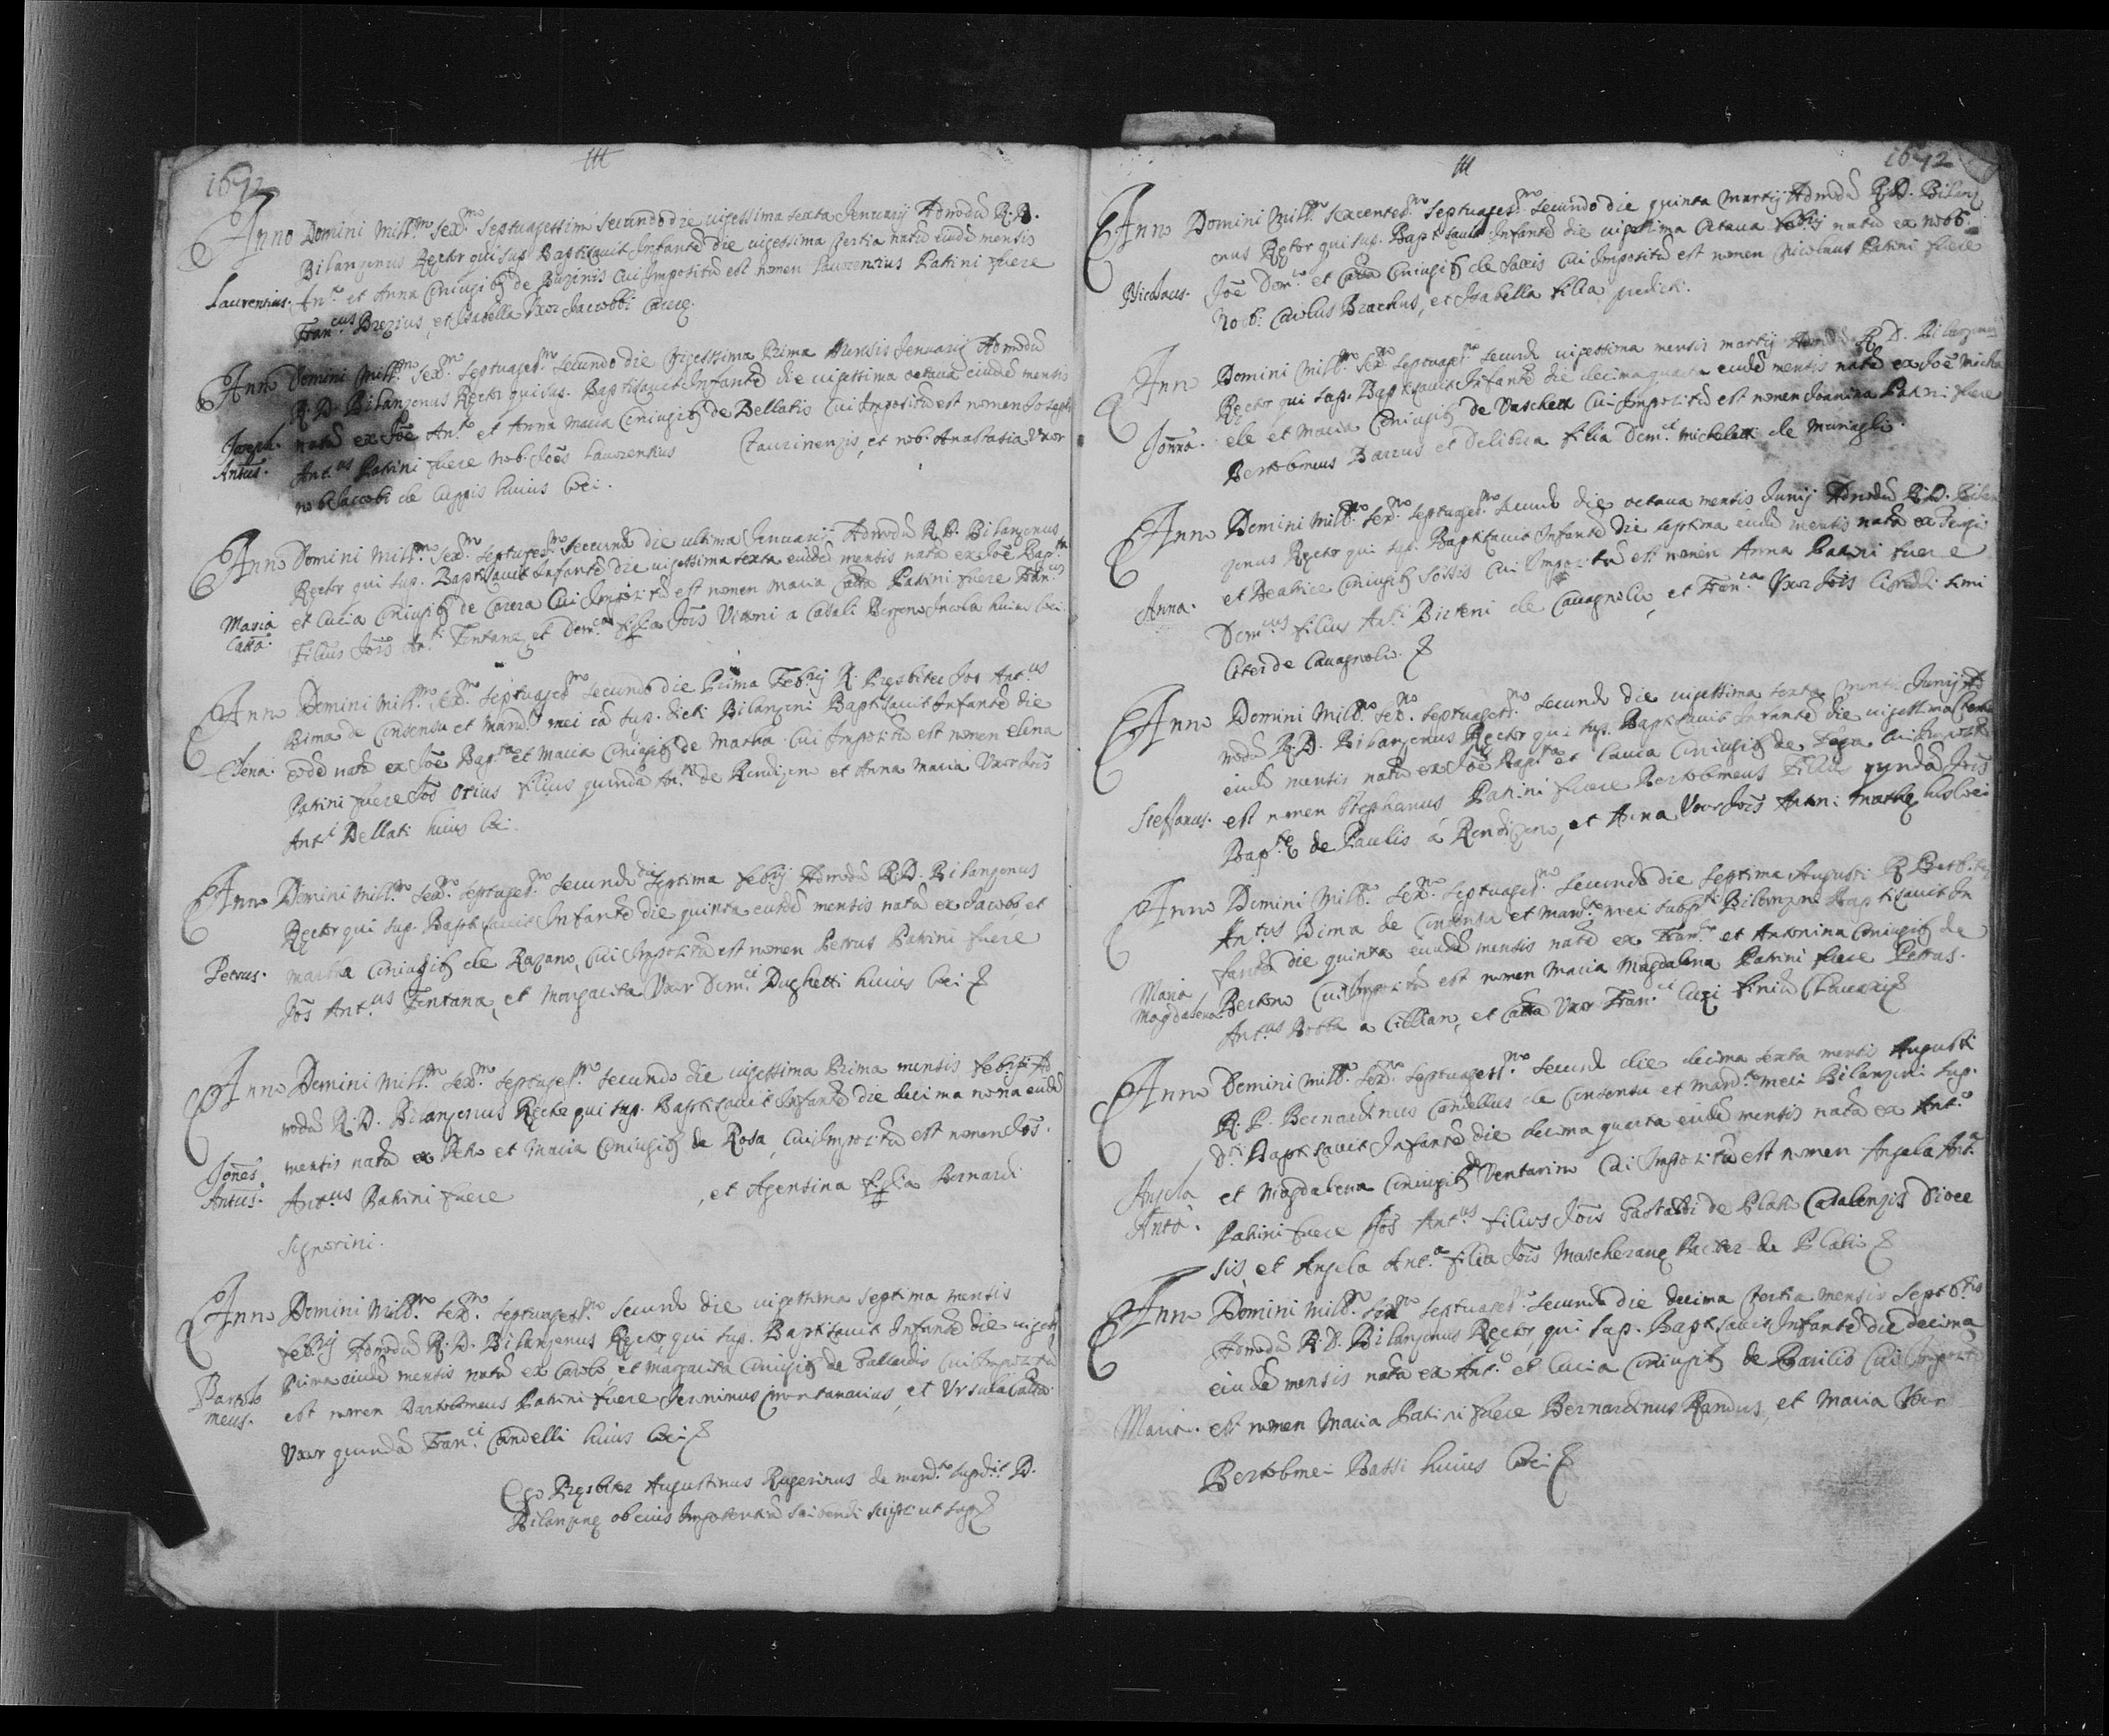 1672
Anno Domini Mill.mo sex.mo septuagessim secundo die uigessima sexta Jenuarij Admodũ R. D.
Bilangenus Rector qui sup. Baptisauit Infantẽ die uigessima tertia natũ eiusdẽ mensis
Laurentius. An.o et Anna Coniugib de Buzinis Cui Impositũ est nomen Laurentius Patrini fuere
Fran.cus Brezius, et Isabella Vxor Jacobbi
Anno Domini Mill.mo sex.mo septuages.mo secundo die trigessima Prima Mensis Jenuarij Admodũ
R. D. Bilangenus Rector qui sup. Baptisauit Infantẽ die uigessima octaua eiusdẽ mensis
Joseph. natũ ex Joẽ Ant.o et Anna Maria Coniugib de Bellatis Cui Impositũ est nomen Joseph
Antus. Ant.us Patrini fuere Nob. Joẽs Laurentius Taurinensis, et nob. Anastasia Vxor
nob Jacobi de huius loci.
Anno Domini Mill.mo sex.mo septuges.mo secundo die ultima Jenuarij Admodũ R. D. Bilangenus
Rector qui sup. Baptisauit Infantẽ die uigessima sexta eiusdẽ mensis natã ex Joẽ Bap.ta
Maria et Lucia Coniugib de Carera Cui Impositũ est nomen Maria Catta Patrini fuere Fran.cus
Catta. Filius Jois An.ti Fontane, et Dom.ca filia Jois Vittoni a Casali Borgono Incola huius loci.
Anno Domini Mill.mo sex.mo septuages.mo secundo die Prima Feb.rij R. Presbiter Jos Ant.us
Bima de Consensu et mand.o mei sup. dicti Bilangeni Baptisauit Infantẽ die
Elena. eodẽ natã ex Joẽ Bap.ta et Maria Coniugib de Matha Cui Impositũ est nomen elena
Patrini fuere Jos Orius filius quondã An.ti de Rondizon et Anna Maria Vxor Jois
Ant.i Bellati huius loci.
Anno Domini Mill.mo sex.mo septuages.mo secundo die septima feb.rij Admodũ R. D. Bilangenus
Rector qui sup. Baptisauit Infantẽ die quinta eiusdẽ mensis natũ ex Jacobo, et
Petrus. Martha Coniugib de Razano, Cui Impositũ est nomen Petrus Patrini fuere
Jos Ant.us Fontana, et Margarita Vxor Dom.ci Dughetti huius loci
Anno Domini Mill.mo sex.mo septuges.mo secundo die uigessima Prima mensis feb.rij Ad
modũ R. D. Bilangenus Rector qui sup. Baptisauit Infantẽ die decima nona eiusdẽ
Jones mensis natũ ex Petro et Maria Coniugib de Rosa, Cui Impositũ est nomen Jos.
Antus. Ant.us Patrini fuere , et Agentina filia Bernardi
Signorini.
Anno Domini Mill.mo sex.mo septuages.mo secundo die uigessima septima mensis
feb.rij Admodũ R. D. Bilangenus Rector, qui sup. Baptisauit Infantẽ die uigess
Bartolo Prima eiusdẽ mensis natũ ex Carolo, et Margarita Coniugib de Gallardis Cui Impositũ
meus. est nomen Bartolomeus Patrini fuere Jeronimus Montanarius, et Vrsula Catta
Vxor quondã Fran.ci Candelli huius loci
Ego Presbiter Augustinus Rugerinus de mand.to supd.ti D.
Bilangeng ob eius Impotentiã scribendi scripsi ut sup.
1672
Anno Domini Mill.mo sexcentes.mo septuages.mo secundo die quinta Martij Admodũ R. D. Bilang
enus Rector qui sup. Baptisauit Infantẽ die uigessima Octaua feb.rij natũ ex Nob.
Nicolaus. Joẽ Dom.co et Catta Coniugib de Saxis Cui Impositũ est nomen Nicolaus Patrini fuere
Nob. Carolus Brachus, et Isabella filia predicti.
Anno Domini Mill.mo sex.mo septuages.mo secundo uigessima mensis martij Admodũ R. D. Bilangenus
Rector qui sup. Baptisauit Infantẽ die decima quarta eiusdẽ mensis natã ex Joẽ Micha
Jonna. ele et Maria Coniugib de Vaschett Cui Impositũ est nomen Joannina Patrini fuere
Bertolmeus Barrus et Delibera filia Dom.ci Micheletti de Muriaglio.
Anno Domini Mill.mo sex.mo septuages.mo secundo die octaua mensis Junij Admodũ R. D. Bilan
genus Rector qui sup. Baptisauit Infantẽ die septima eiusdẽ mensis natã ex
Anna. et Beatrice Coniugib Cui Impositũ est nomen Anna Patrini fuere
Dom.cus filius An.ti Bieteni de Cauagnolio, et Fran.ca Vxor Jois
de Cauagnolio.
Anno Domini Mill.mo sex.mo septuages.mo secundo die uigessima sexta mensis Junij Ad
modũ R. D. Bilangenus Rector qui sup. Baptisauit Infantẽ die uigessima
eiusdẽ mensis natũ ex Joẽ Bap.ta et Laura Coniugib de Cui Impositũ
Steffanus. est nomen Stephanus, Patrini fuere Bertolomeus Filius quondã Jois
Bap.te de Paulis à Rondizon, et Anna Vxor Jois Antoni Mathe huius loci
Anno Domini Mill.mo sex.mo septuages.mo secundo die septima Augusti R. Presb.ter
An.tus Bima de Consensu et mand.to mei Bilangeni Baptisauit In
Maria fantẽ die quinta eiusdẽ mensis natã ex Fran.co et Antonina Coniugib de
Magdalena. Bertono Cui Impositũ est nomen Maria Magdalena Patrini fuere Petrus.
Ant.us Botta a Cilliano, et Catta Vxor Fran.ci
Anno Domini Mill.mo sex.mo septuages.mo secundo die decima sexta mensis Augusti
R. P. Bernardinus Candellus de Consensu et mand.to mei Bilangeni sup.
d.ti Baptisauit Infantẽ die decima quarta eiusdẽ mensis natã ex Ant.o
Angela et Magdalena Coniugib Venturino Cui Impositũ est nomen Angela Ant.a
Anta. Patrini fuere Jos Ant.us filius Jois Gastaldi de Plati Casalengis Dioce
sis, et Angela Ant.a filia Jois Mascherane Pariter de Plati
Anno Domini Mill.mo sex.mo septuages.mo secundo die decima tertia mensis Septb.ris
Admodũ R. D. Bilangenus Rector, qui sup. Baptisauit Infantẽ die decima
eiusdẽ mensis natã ex Ant.o et Lucia Coniugib de Basilio Cui Impositũ
Maria. est nomen Maria Patrini fuere Bernardinus Randus, et Maria Vxor
Bertolmei Bassi huius loci